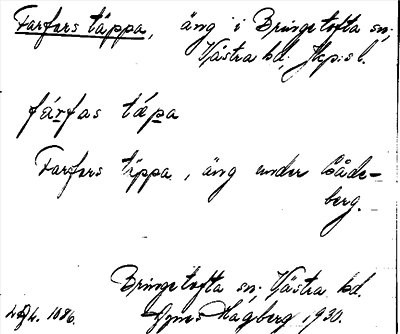 Farfars täppa, äng i Bringetofta sn;
Västra hd; Jkp:s l.
fárfas tæpa
Farfars täppa, äng under Såde-
berg.
Bringetofta sn; Västra hd.
1086. Agnes Hagberg 1930.